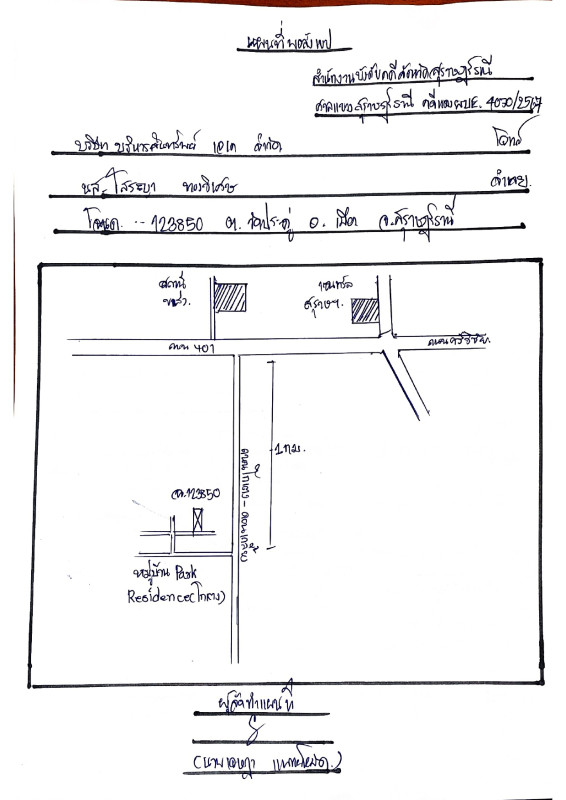 แผนที่พอสังเขป
สำนักงานบังคับคดีจังหวัดสุราษฎร์ธานี
ศาลแขวงสุราษฎร์ธานี คดีแดง ผบE. 4030/2567
บริษัท บริหารสินทรัพย์ เจเค จำกัด โจทก์
นส. โสระญา ทองวิเศษ จำเลย
โฉนด. 123850 ต. วัดประดู่ อ. เมือง จ. สุราษฎร์ธานี
สถานี
ขนส่ง.
เซนทรัล
สุราษฯ.
ถนน 401
ถนนศรีวิชัย
1 กม.
จด.123850
หมู่บ้าน Park
Residence(โฉลง)
ผู้จัดทำแผนที่